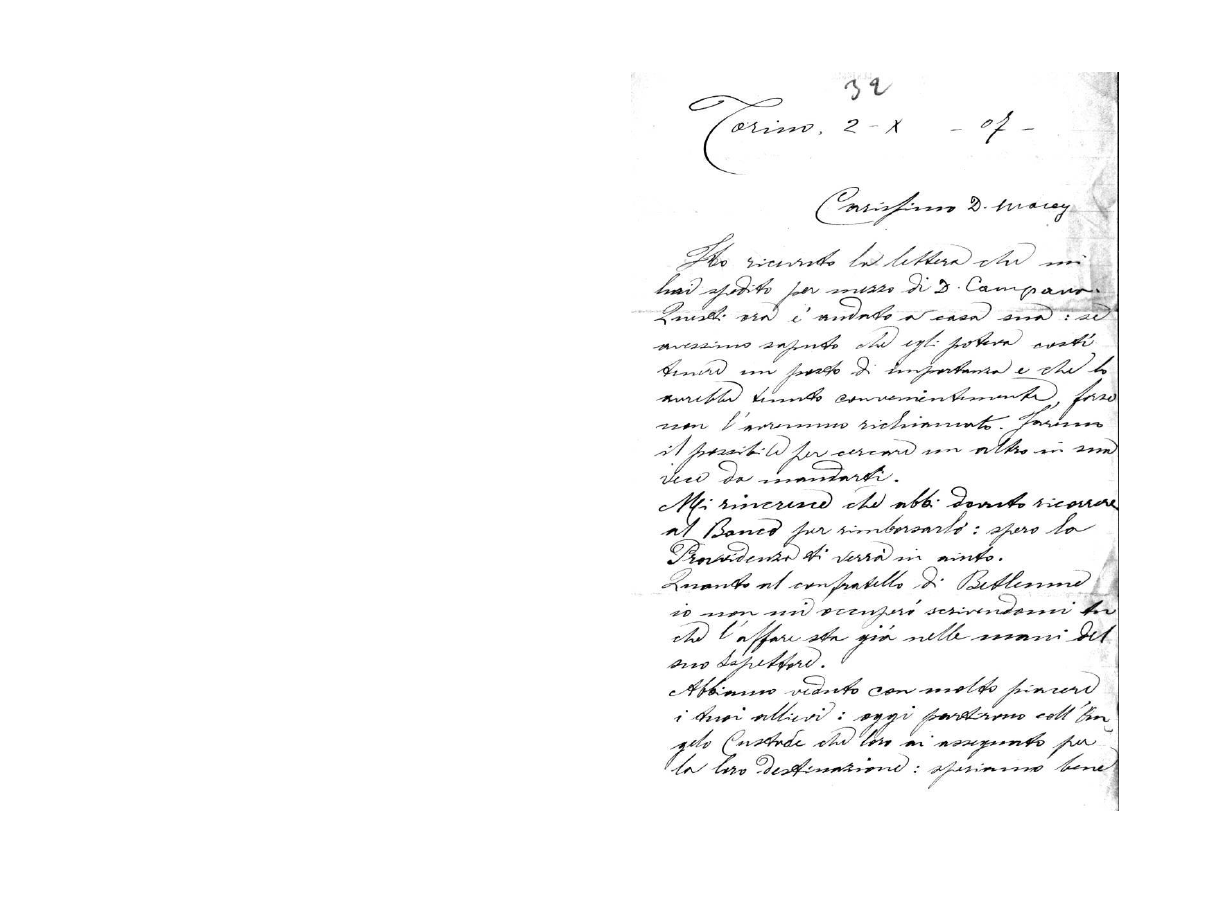 32
Torino, 2 - X - 07 -
Carissimo D. Macey
Ho ricevuto la lettera che mi
hai spedito per mezzo di D. Campana.
Questi ora é andato a casa sua : se
avessimo saputo che egli poteva costí
tenere un posto di importanza e che lo
avrebbe tenuto convenientemente, forse
non l'avremmo richiamato. Faremo
il possibile per cercare un altro in sua
vece da mandarti.
Mi rincresce che abbi dovuto ricorrere
al Banco per rimborsarlo : spero la
Provvidenza ti verrà in aiuto.
Quanto al confratello di Betlemme
io non mi occuperó scrivendomi tu
che l'affare sta giá nelle mani del
suo Ispettore.
Abbiamo veduto con molto piacere
i tuoi allievi : oggi partirono coll'An-
gelo Custode che loro ai assegnato per
la loro destinazione : speriamo bene